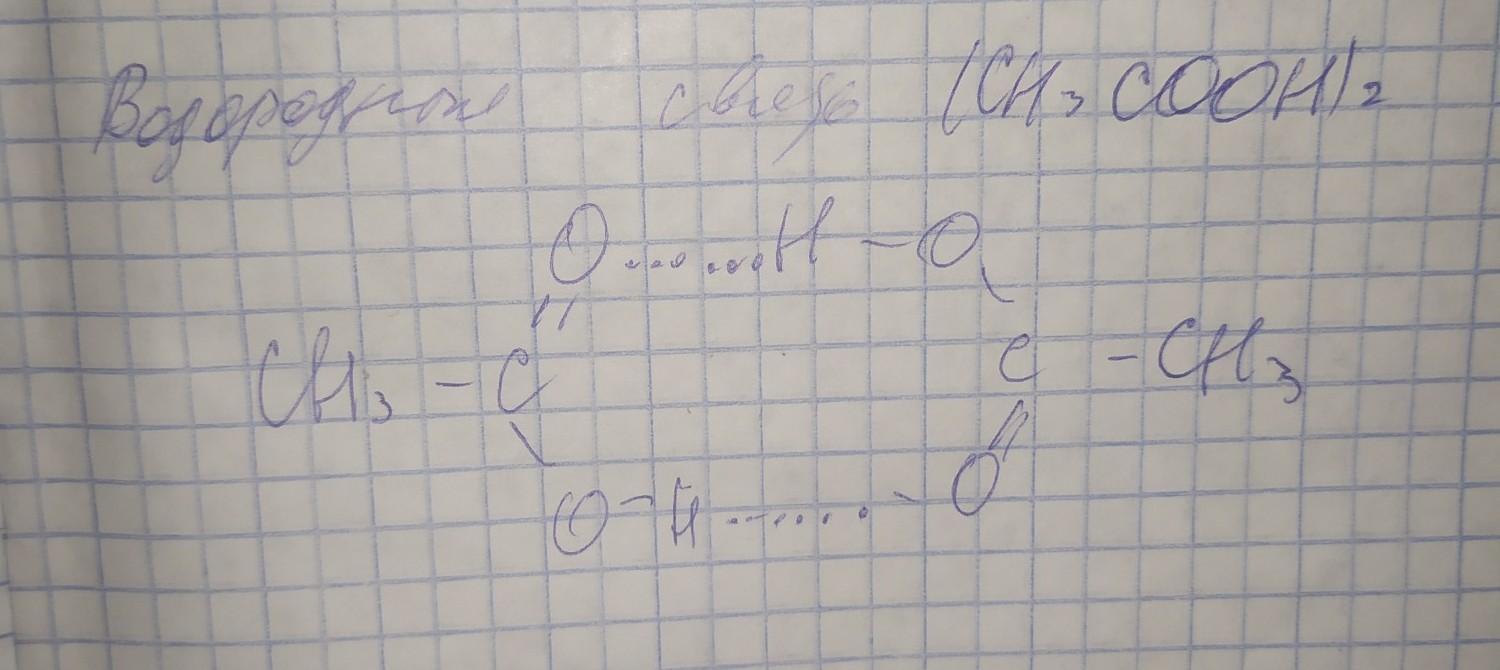 Водородная связь (CH3COOH)2
O.......H-O
CH3-C C-CH3
O-H.......O